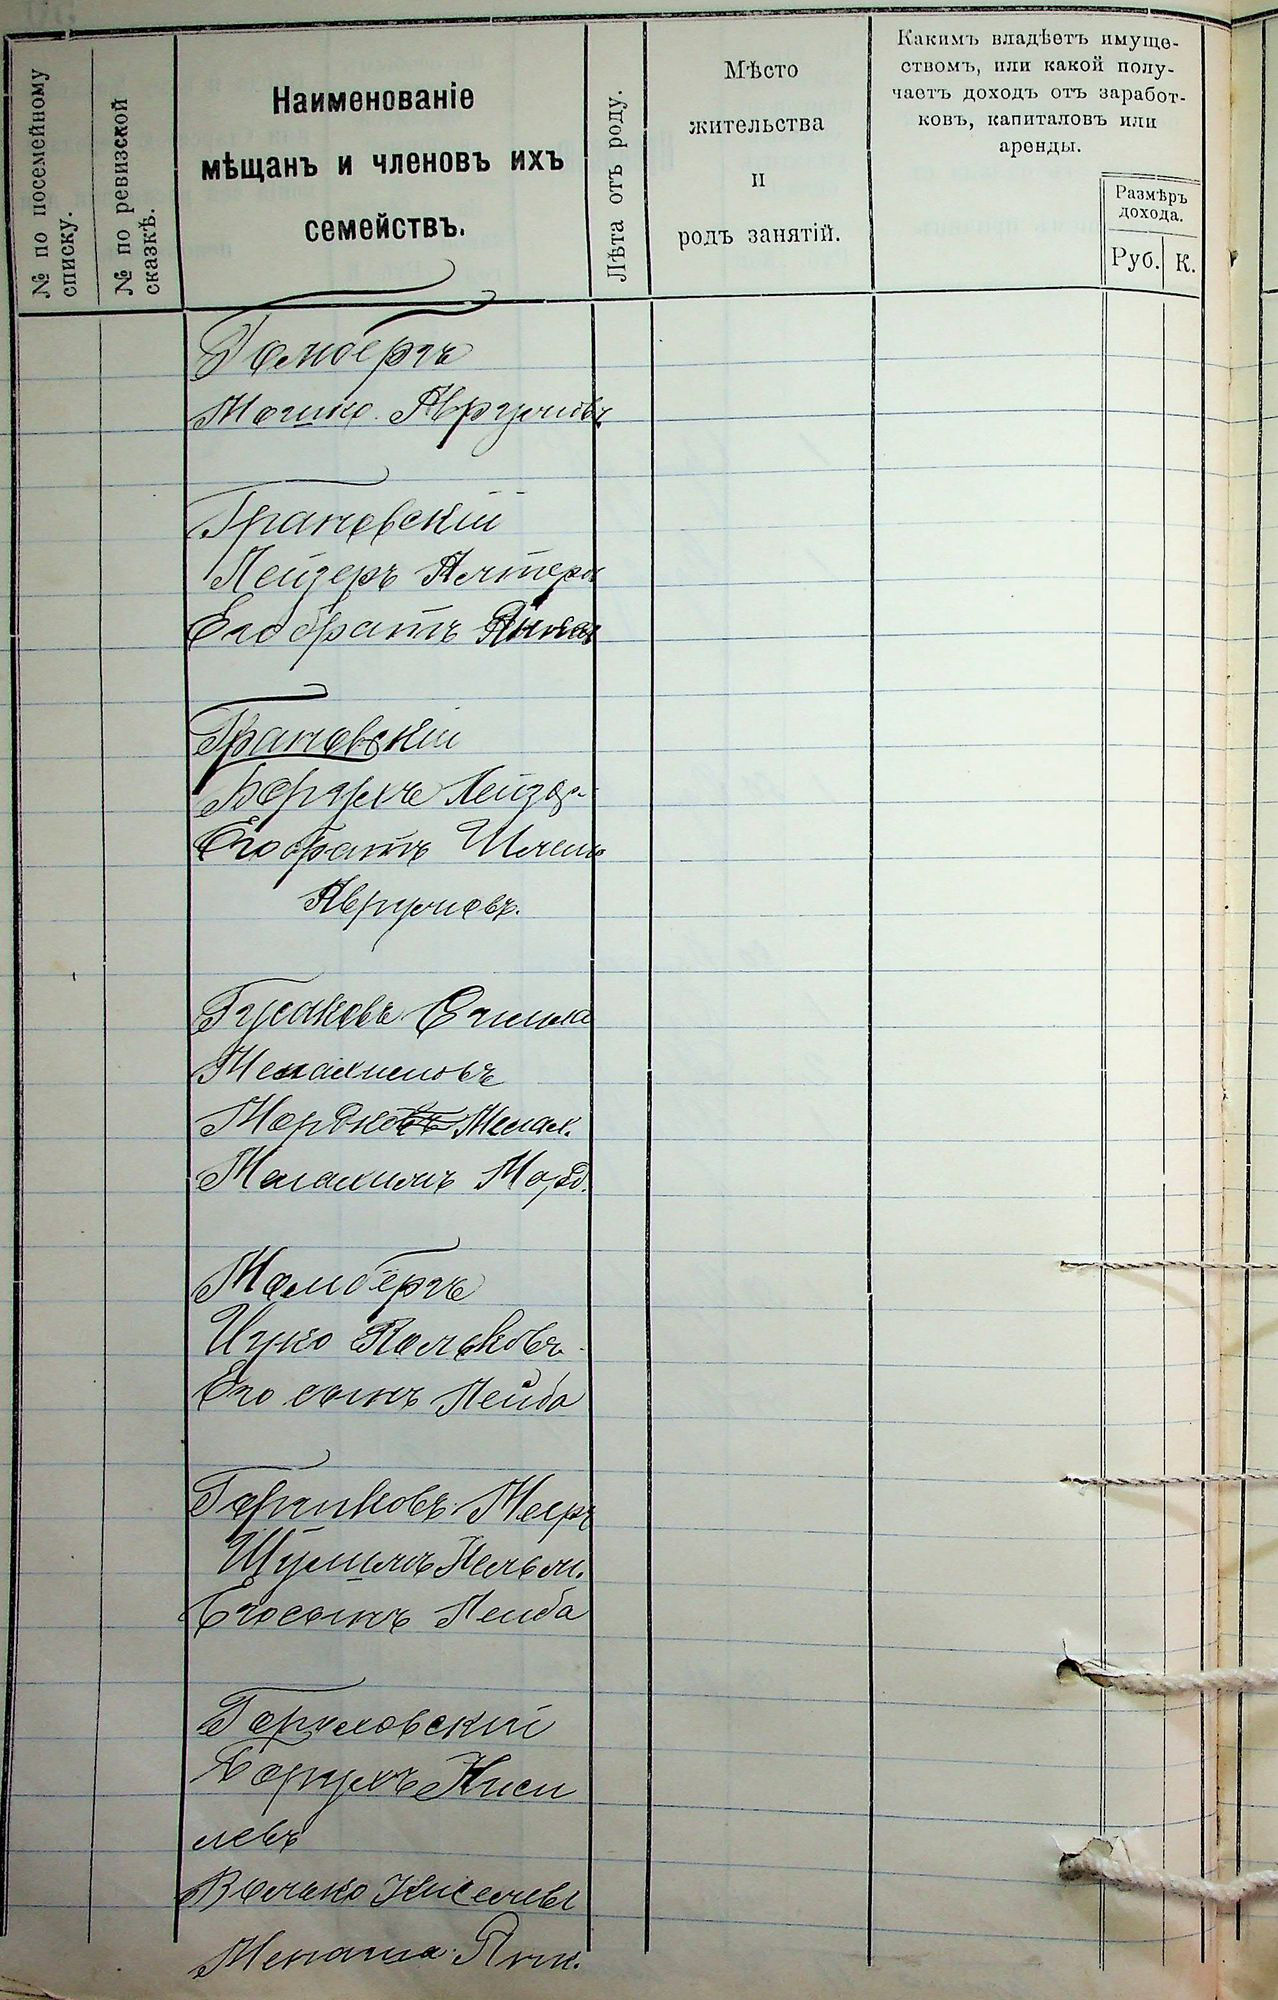 № по посемейному
списку.
№ по ревизской
сказкѣ.
Наименованіе
мѣщанъ и членовъ ихъ
семействъ.
Лѣта отъ роду.
Мѣсто
жительства
и
родъ занятій.
Какимъ владѣетъ имуще-
ствомъ, или какой полу-
чаетъ доходъ отъ заработ-
ковъ, капиталовъ или
аренды.
Размѣръ
дохода.
Руб.
К.
Гамбергъ
Мошко Аврумовъ
Грановскій
Лейзеръ
Его братъ
Грановскій
Борухъ Лейзер.
Его братъ Шлема
Аврумовъ.
Гусаковъ
Менахимовъ
Мордко Менах.
Менахимъ Морд.
Мамбергъ
Ицко
Его сынъ Лейба
Горчиковъ Меер
Шулимъ
Его сынъ Лейба
Борухъ Киси
левъ
Волько Киселевъ
Менаша Янк.